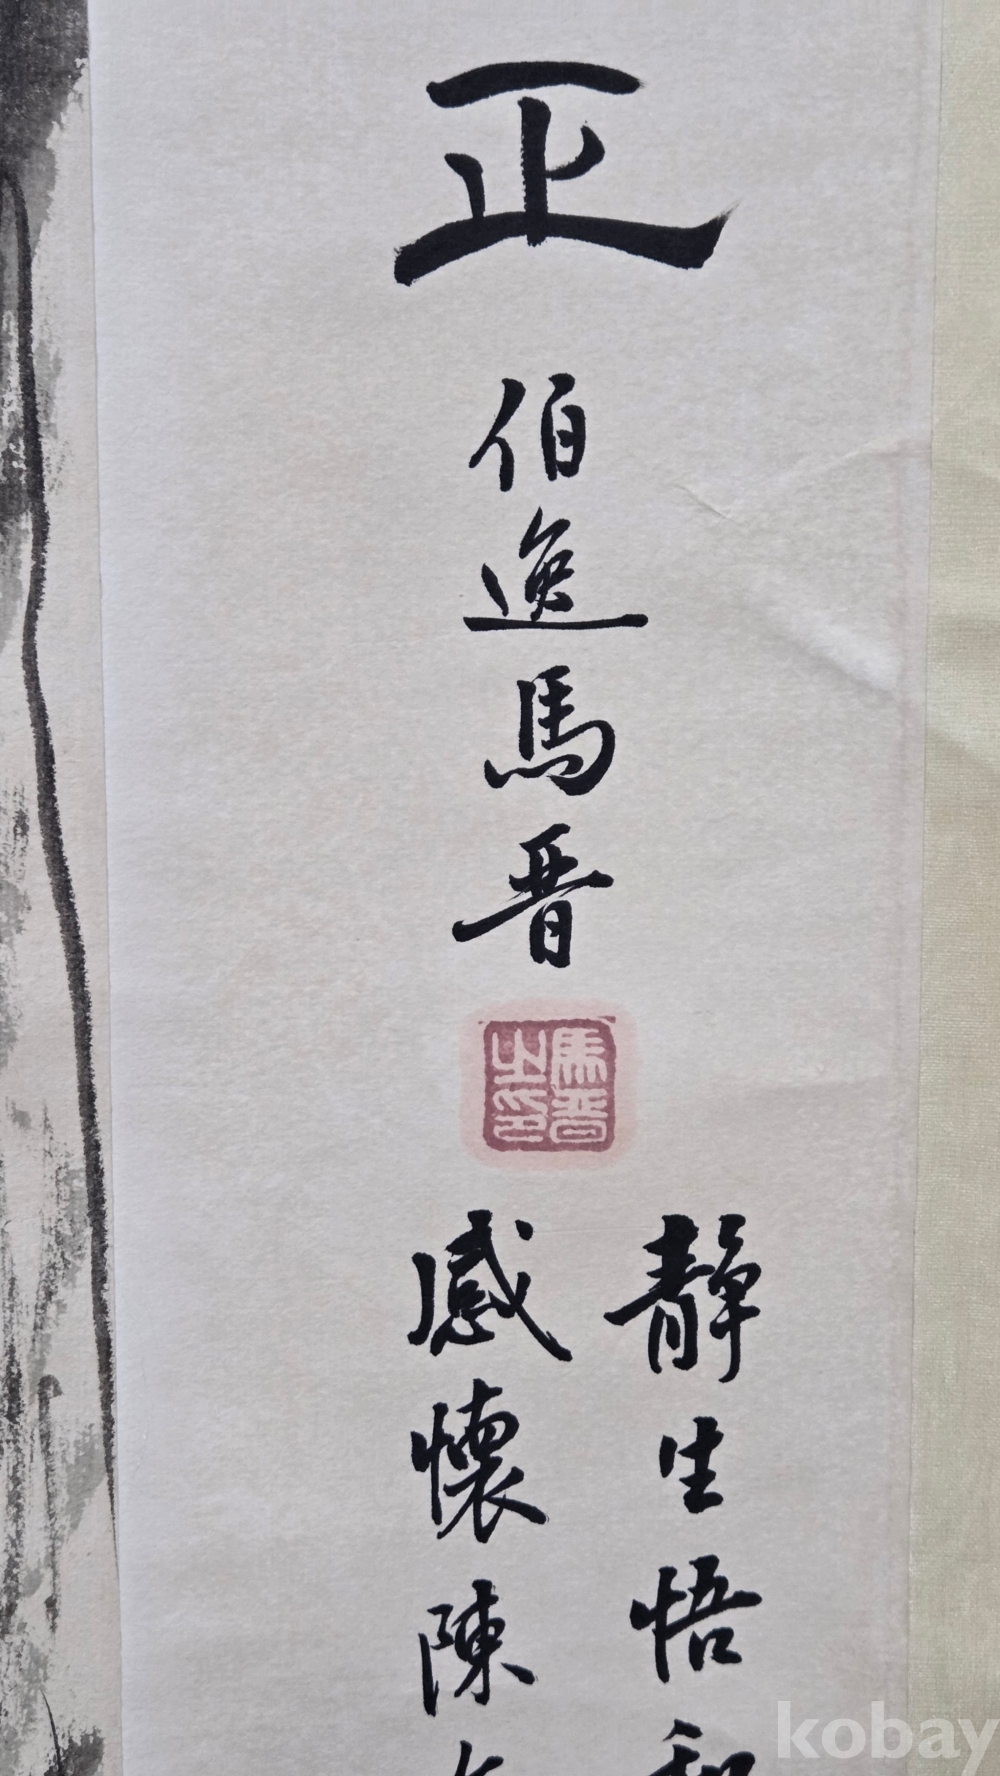 正
伯逸馬晋
馬晋之印
靜生悟和
感懷陳
kobay